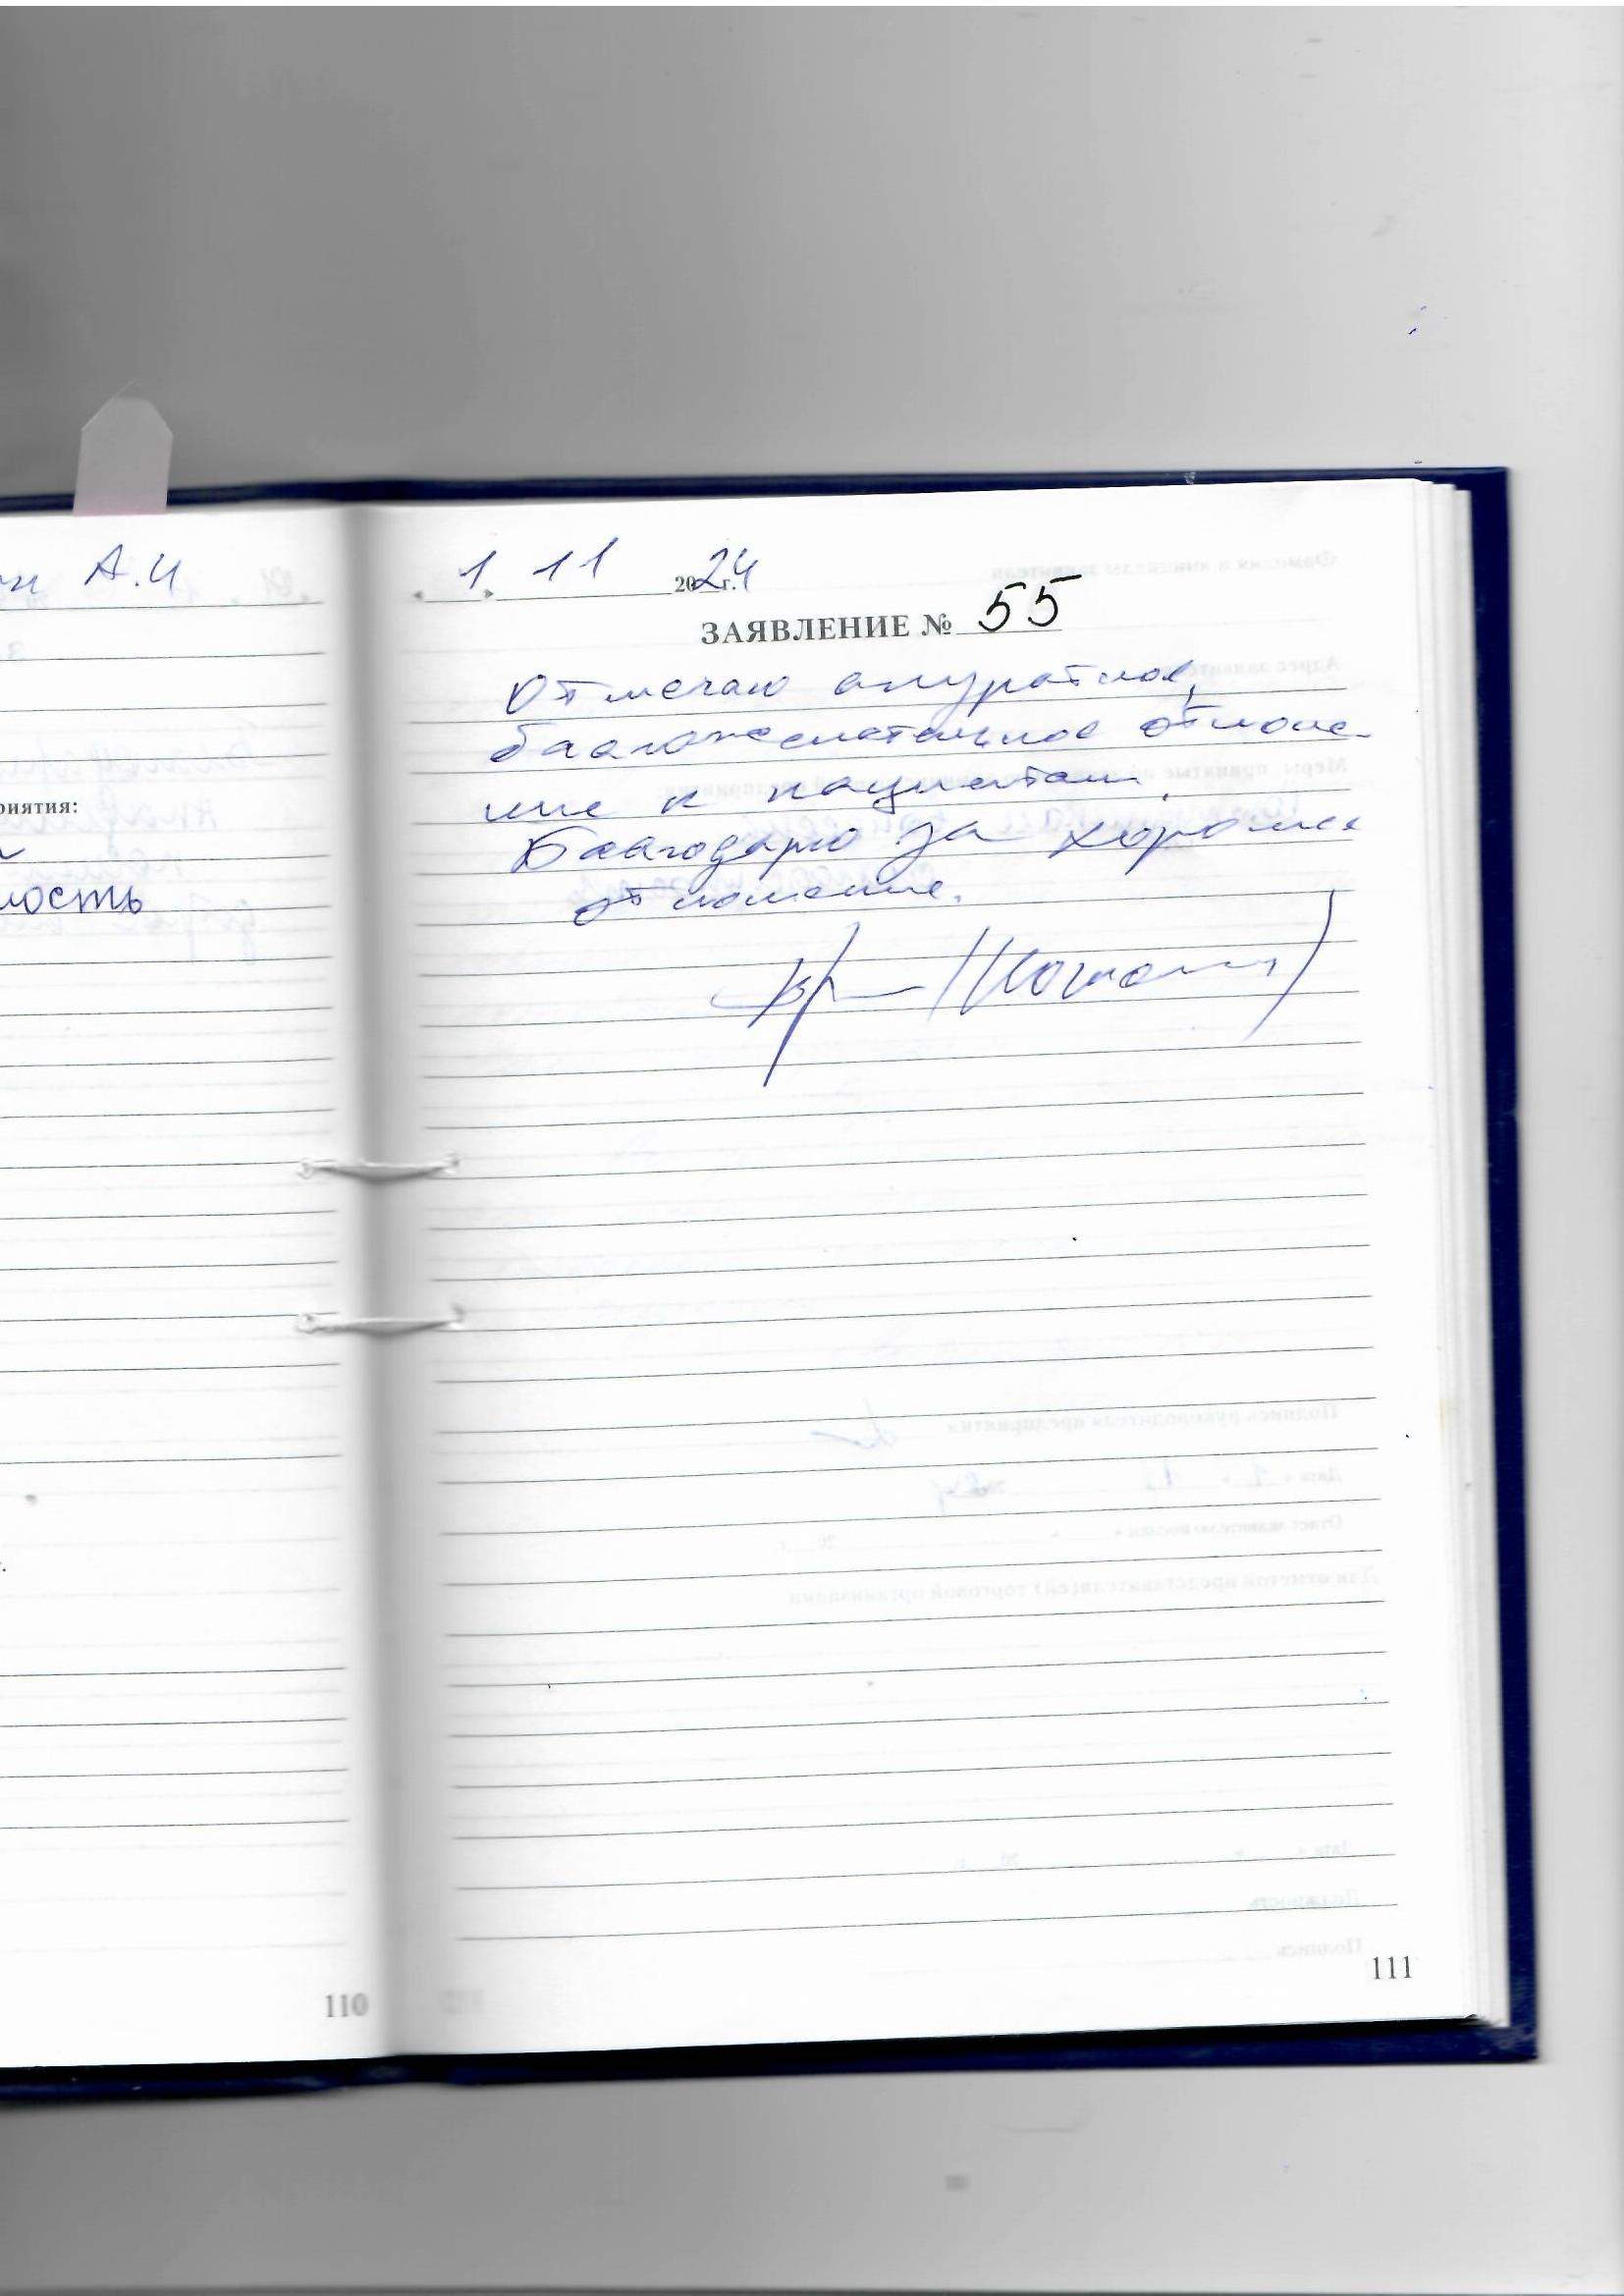 А.И
риятия:
ность
110
« 1 » 11 2024 г.
ЗАЯВЛЕНИЕ № 55
Отмечаю аккуратное,
благожелательное отноше-
ние к пациентам.
Благодарю за хорошее
отношение.
111